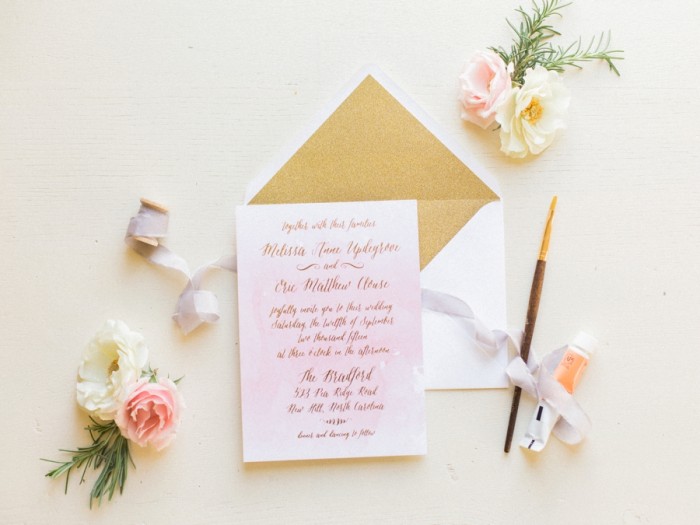 together with their families
Melissa Anne Updegrove
and
Eric Matthew Clouse
joyfully invite you to their wedding
Saturday, the twelfth of September
two thousand fifteen
at three o'clock in the afternoon
The Bradford
523 Pea Ridge Road
New Hill, North Carolina
dinner and dancing to follow